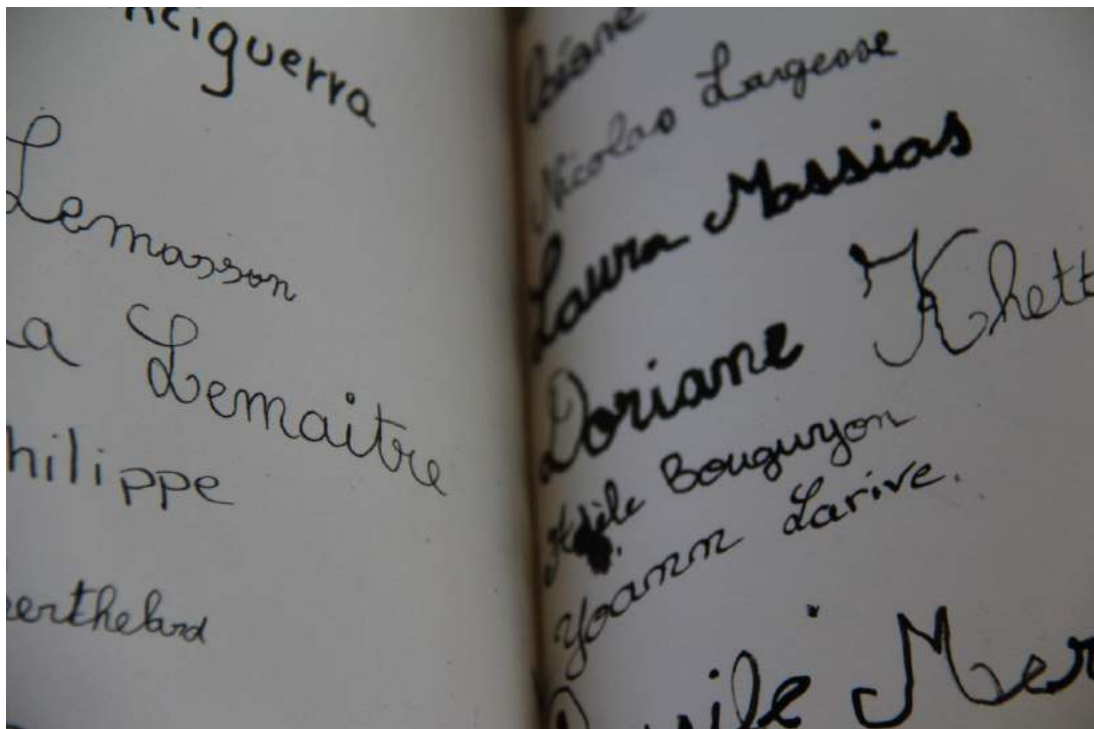 nciguerra
Lemasson
a Lemaitre
hilippe
erthelard
Océane
Nicolas Largesse
Laura Massias
Doriane Khett
Adèle Bouguyon
Yoann Larive.
Mer